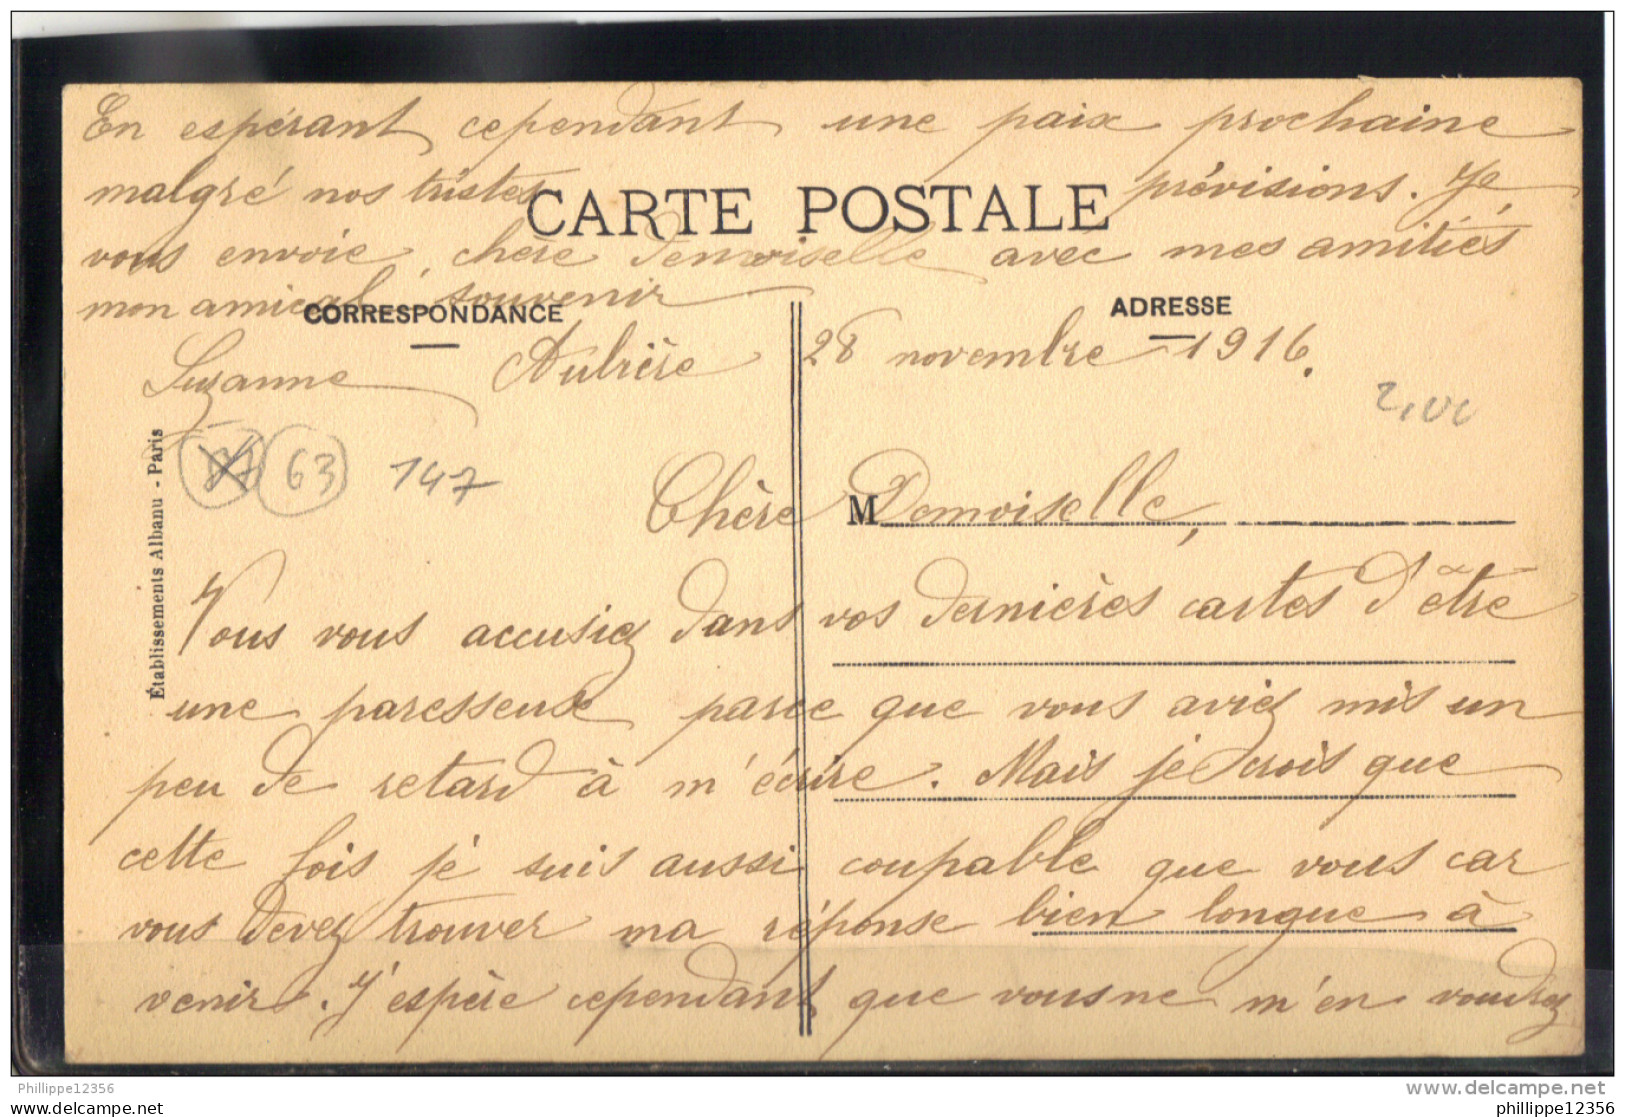 En espérant cependant une paix prochaine
malgré nos tristes prévisions. Je
CARTE POSTALE
vous envoie, chère demoiselle avec mes amitiés
mon amical souvenir
CORRESPONDANCE
ADRESSE
Suzanne Aubière 28 novembre 1916.
2,00
63 147
Établissements Albanu - Paris
Chère M Demoiselle,
Vous vous accusiez dans vos dernières cartes d'être
une paresseuse parce que vous aviez mis un
peu de retard à m'écrire. Mais je crois que
cette fois je suis aussi coupable que vous car
vous devez trouver ma réponse bien longue à
venir. J'espère cependant que vous ne m'en voudrez
Philippe12356
www.delcampe.net
philippe12356